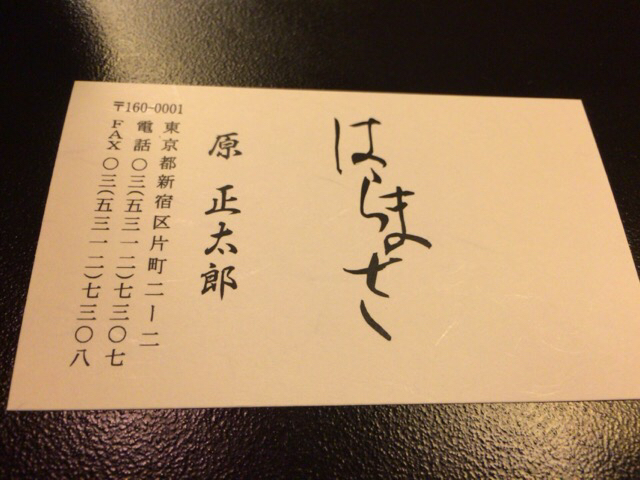 はらまさ
原 正太郎
〒160-0001
東京都新宿区片町二ー二
電話〇三(五三一二)七三〇七
FAX〇三(五三一二)七三〇八